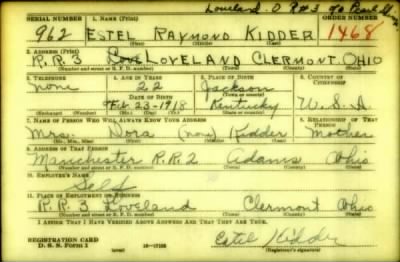 Loveland. O R#3 % Pearl
SERIAL NUMBER 1. NAME (Print) ORDER NUMBER
962 ESTEL RAYMOND KIDDER 1468
(First) (Middle) (Last)
2. ADDRESS (Print)
R.R.3 Love LOVELAND CLERMONT OHIO
(Number and street or R. F. D. number) (Town) (County) (State)
3. TELEPHONE 4. AGE IN YEARS 5. PLACE OF BIRTH 6. COUNTRY OF CITIZENSHIP
none 22 Jackson
DATE OF BIRTH
Feb-23-1918 Kentucky U.S.A
(Exchange) (Number) (Mo.) (Day) (Yr.) (State or country)
7. NAME OF PERSON WHO WILL ALWAYS KNOW YOUR ADDRESS 8. RELATIONSHIP OF THAT PERSON
Mrs. Dora (none) Kidder Mother
(Mr., Mrs., Miss) (First) (Middle) (Last)
9. ADDRESS OF THAT PERSON
Manchester R.R.2 Adams Ohio
(Number and street or R. F. D. number) (Town) (County) (State)
10. EMPLOYER'S NAME
Self
11. PLACE OF EMPLOYMENT OR BUSINESS
R.R.3 Loveland Clermont Ohio
(Number and street or R. F. D. number) (Town) (County) (State)
I AFFIRM THAT I HAVE VERIFIED ABOVE ANSWERS AND THAT THEY ARE TRUE.
REGISTRATION CARD
D. S. S. Form 1 16-17105 Estel Kidder
(Registrant's signature)